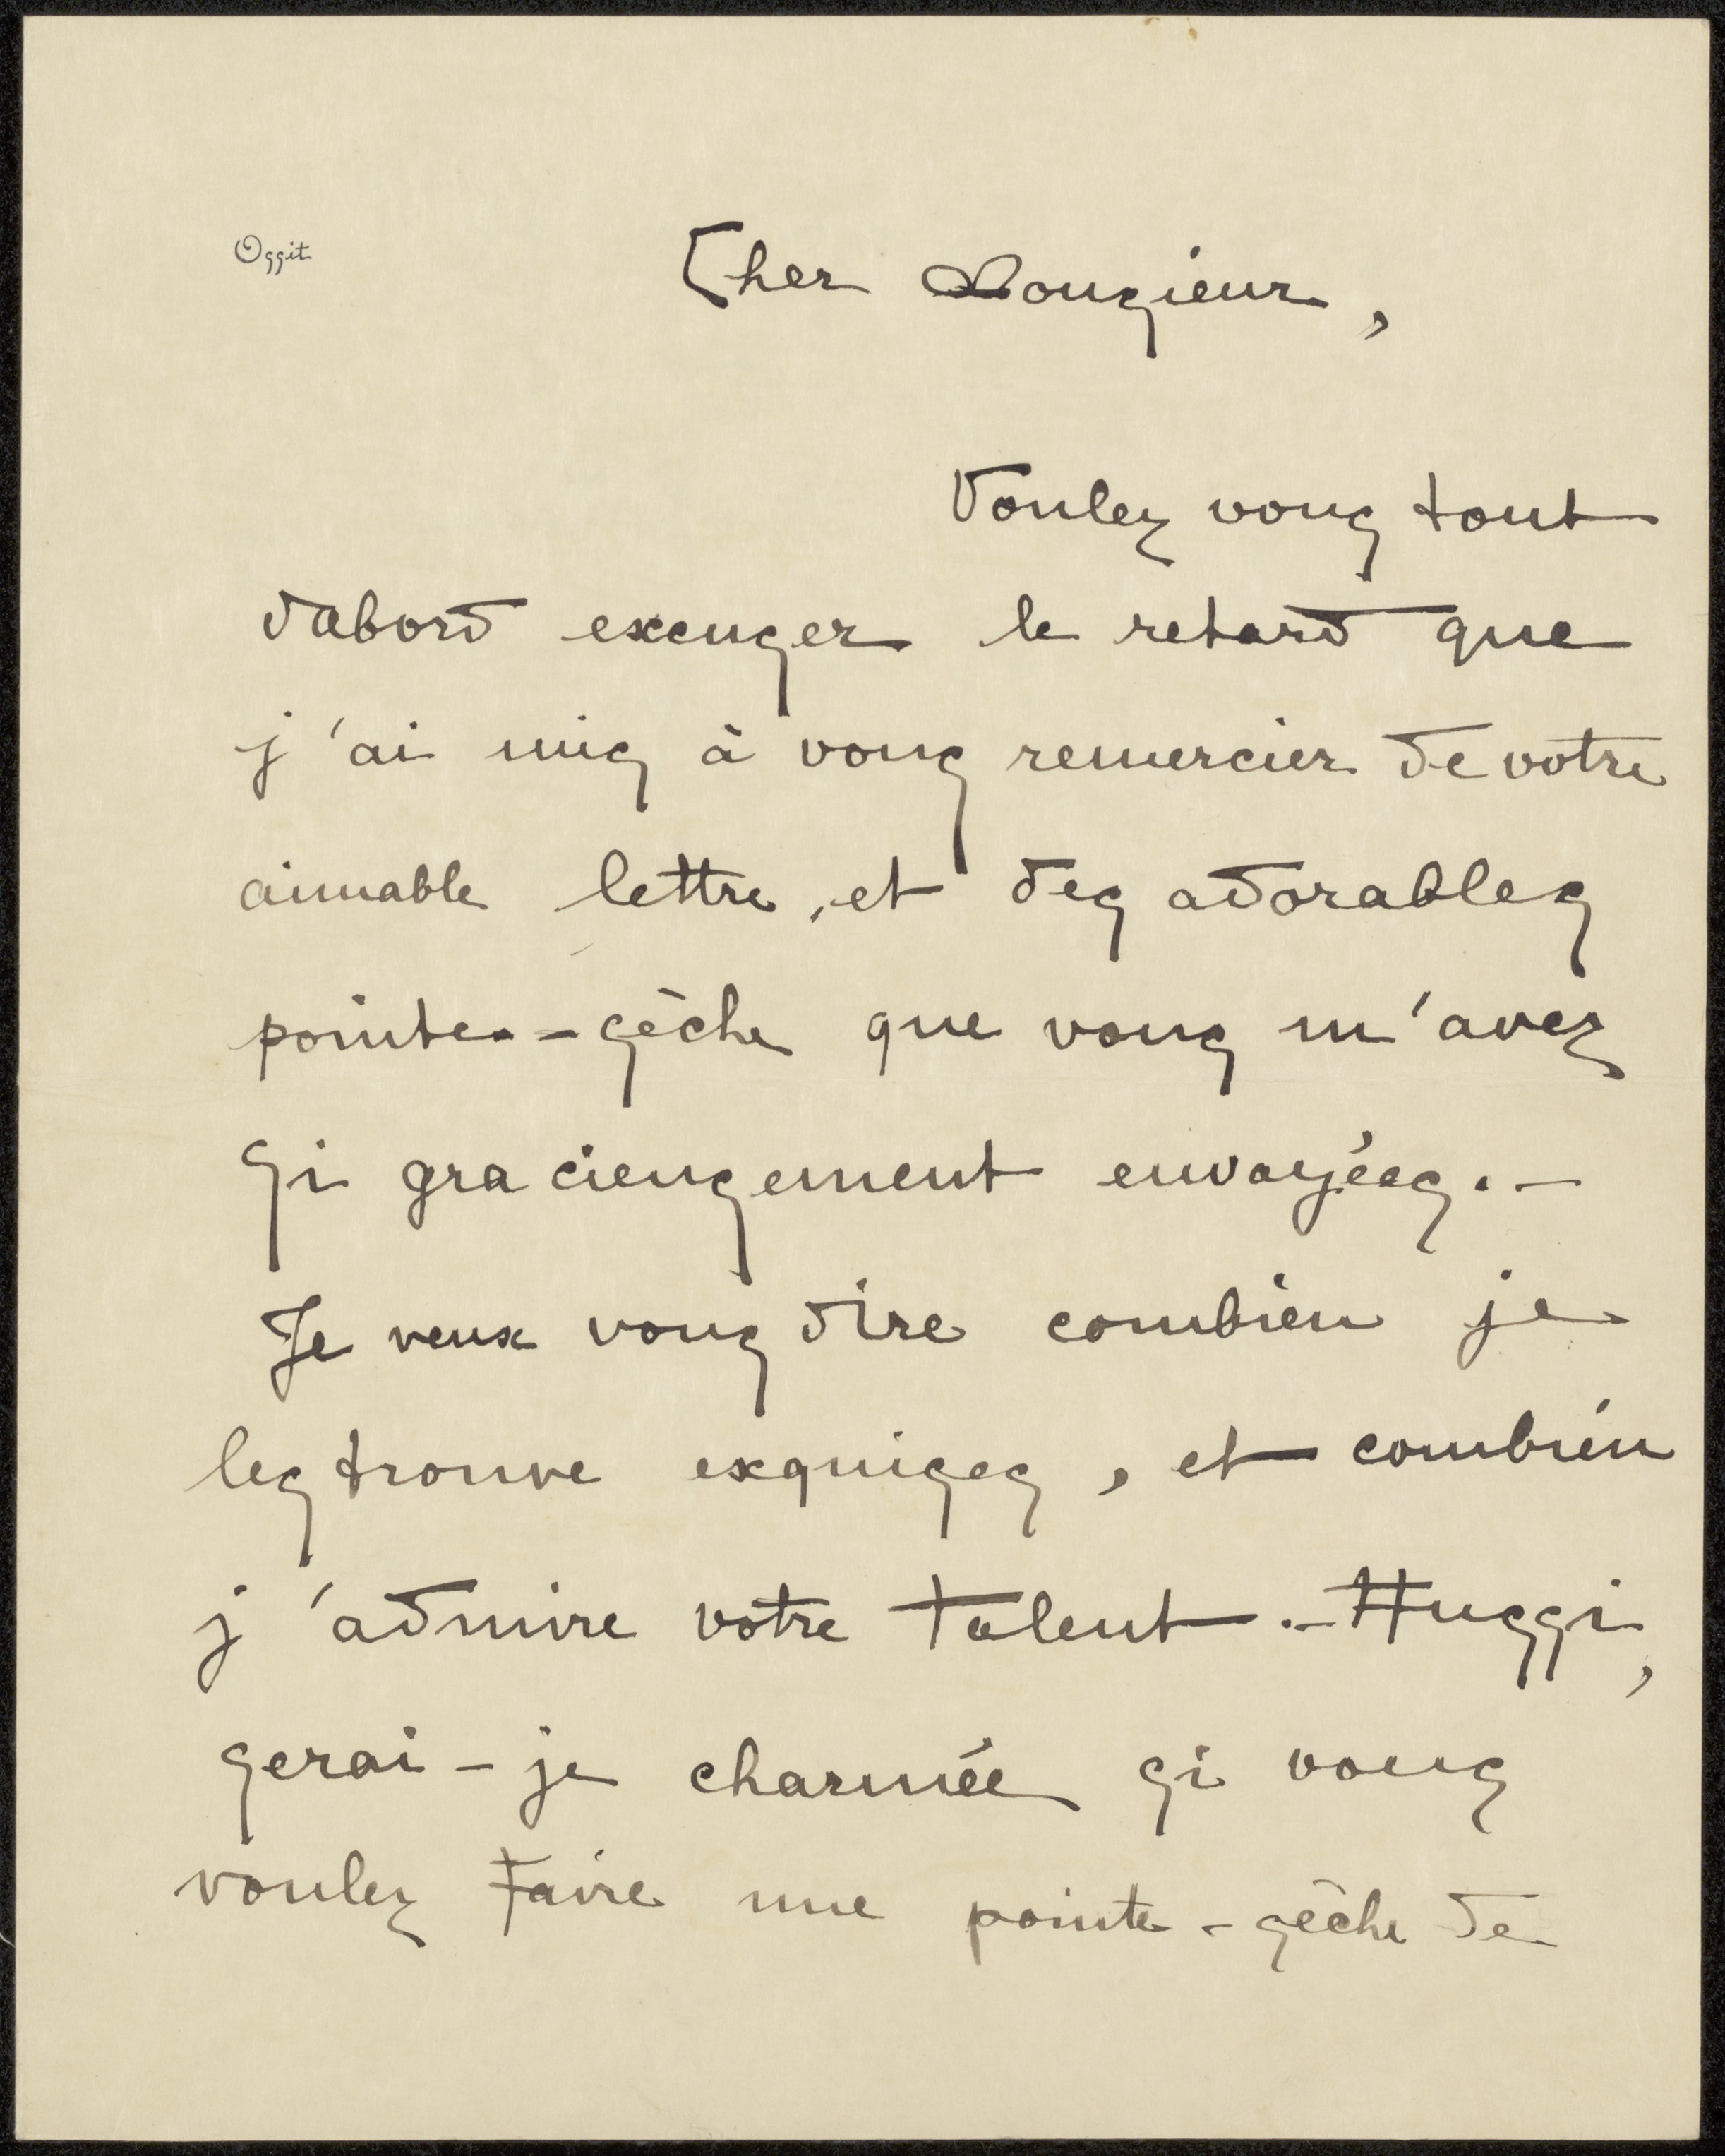 Ossit
Cher Monsieur,
Voulez vous tout
d'abord excuser le retard que
j'ai mis à vous remercier de votre
aimable lettre, et des adorables
pointes-sèche que vous m'avez
si gracieusement envoyées. -
Je veux vous dire combien je
les trouve exquises, et combien
j'admire votre talent. - Aussi,
serai-je charmée si vous
voulez faire une pointe-sèche de